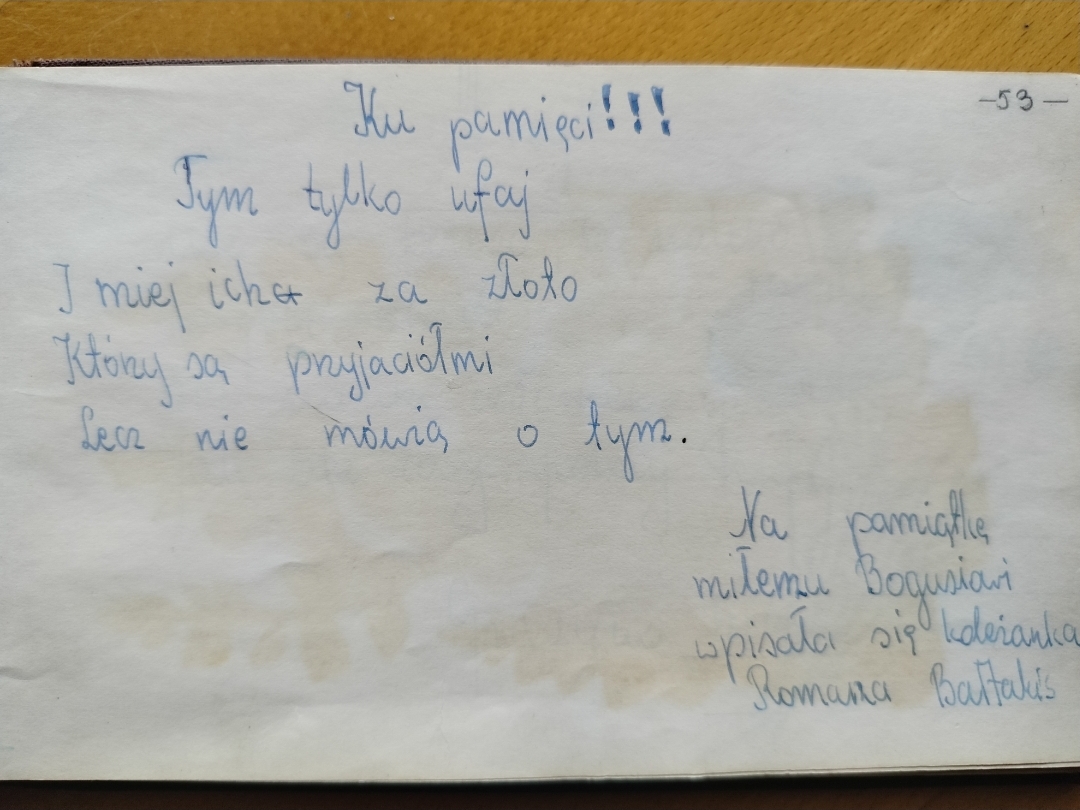 Ku pamięci!!!
-53-
Tym tylko ufaj
I miej ich za złoto
Który są przyjaciółmi
Lecz nie mówią o tym.
Na pamiątkę
miłemu Bogusiawi
wpisała się koleżanka
Romana Bałtakis